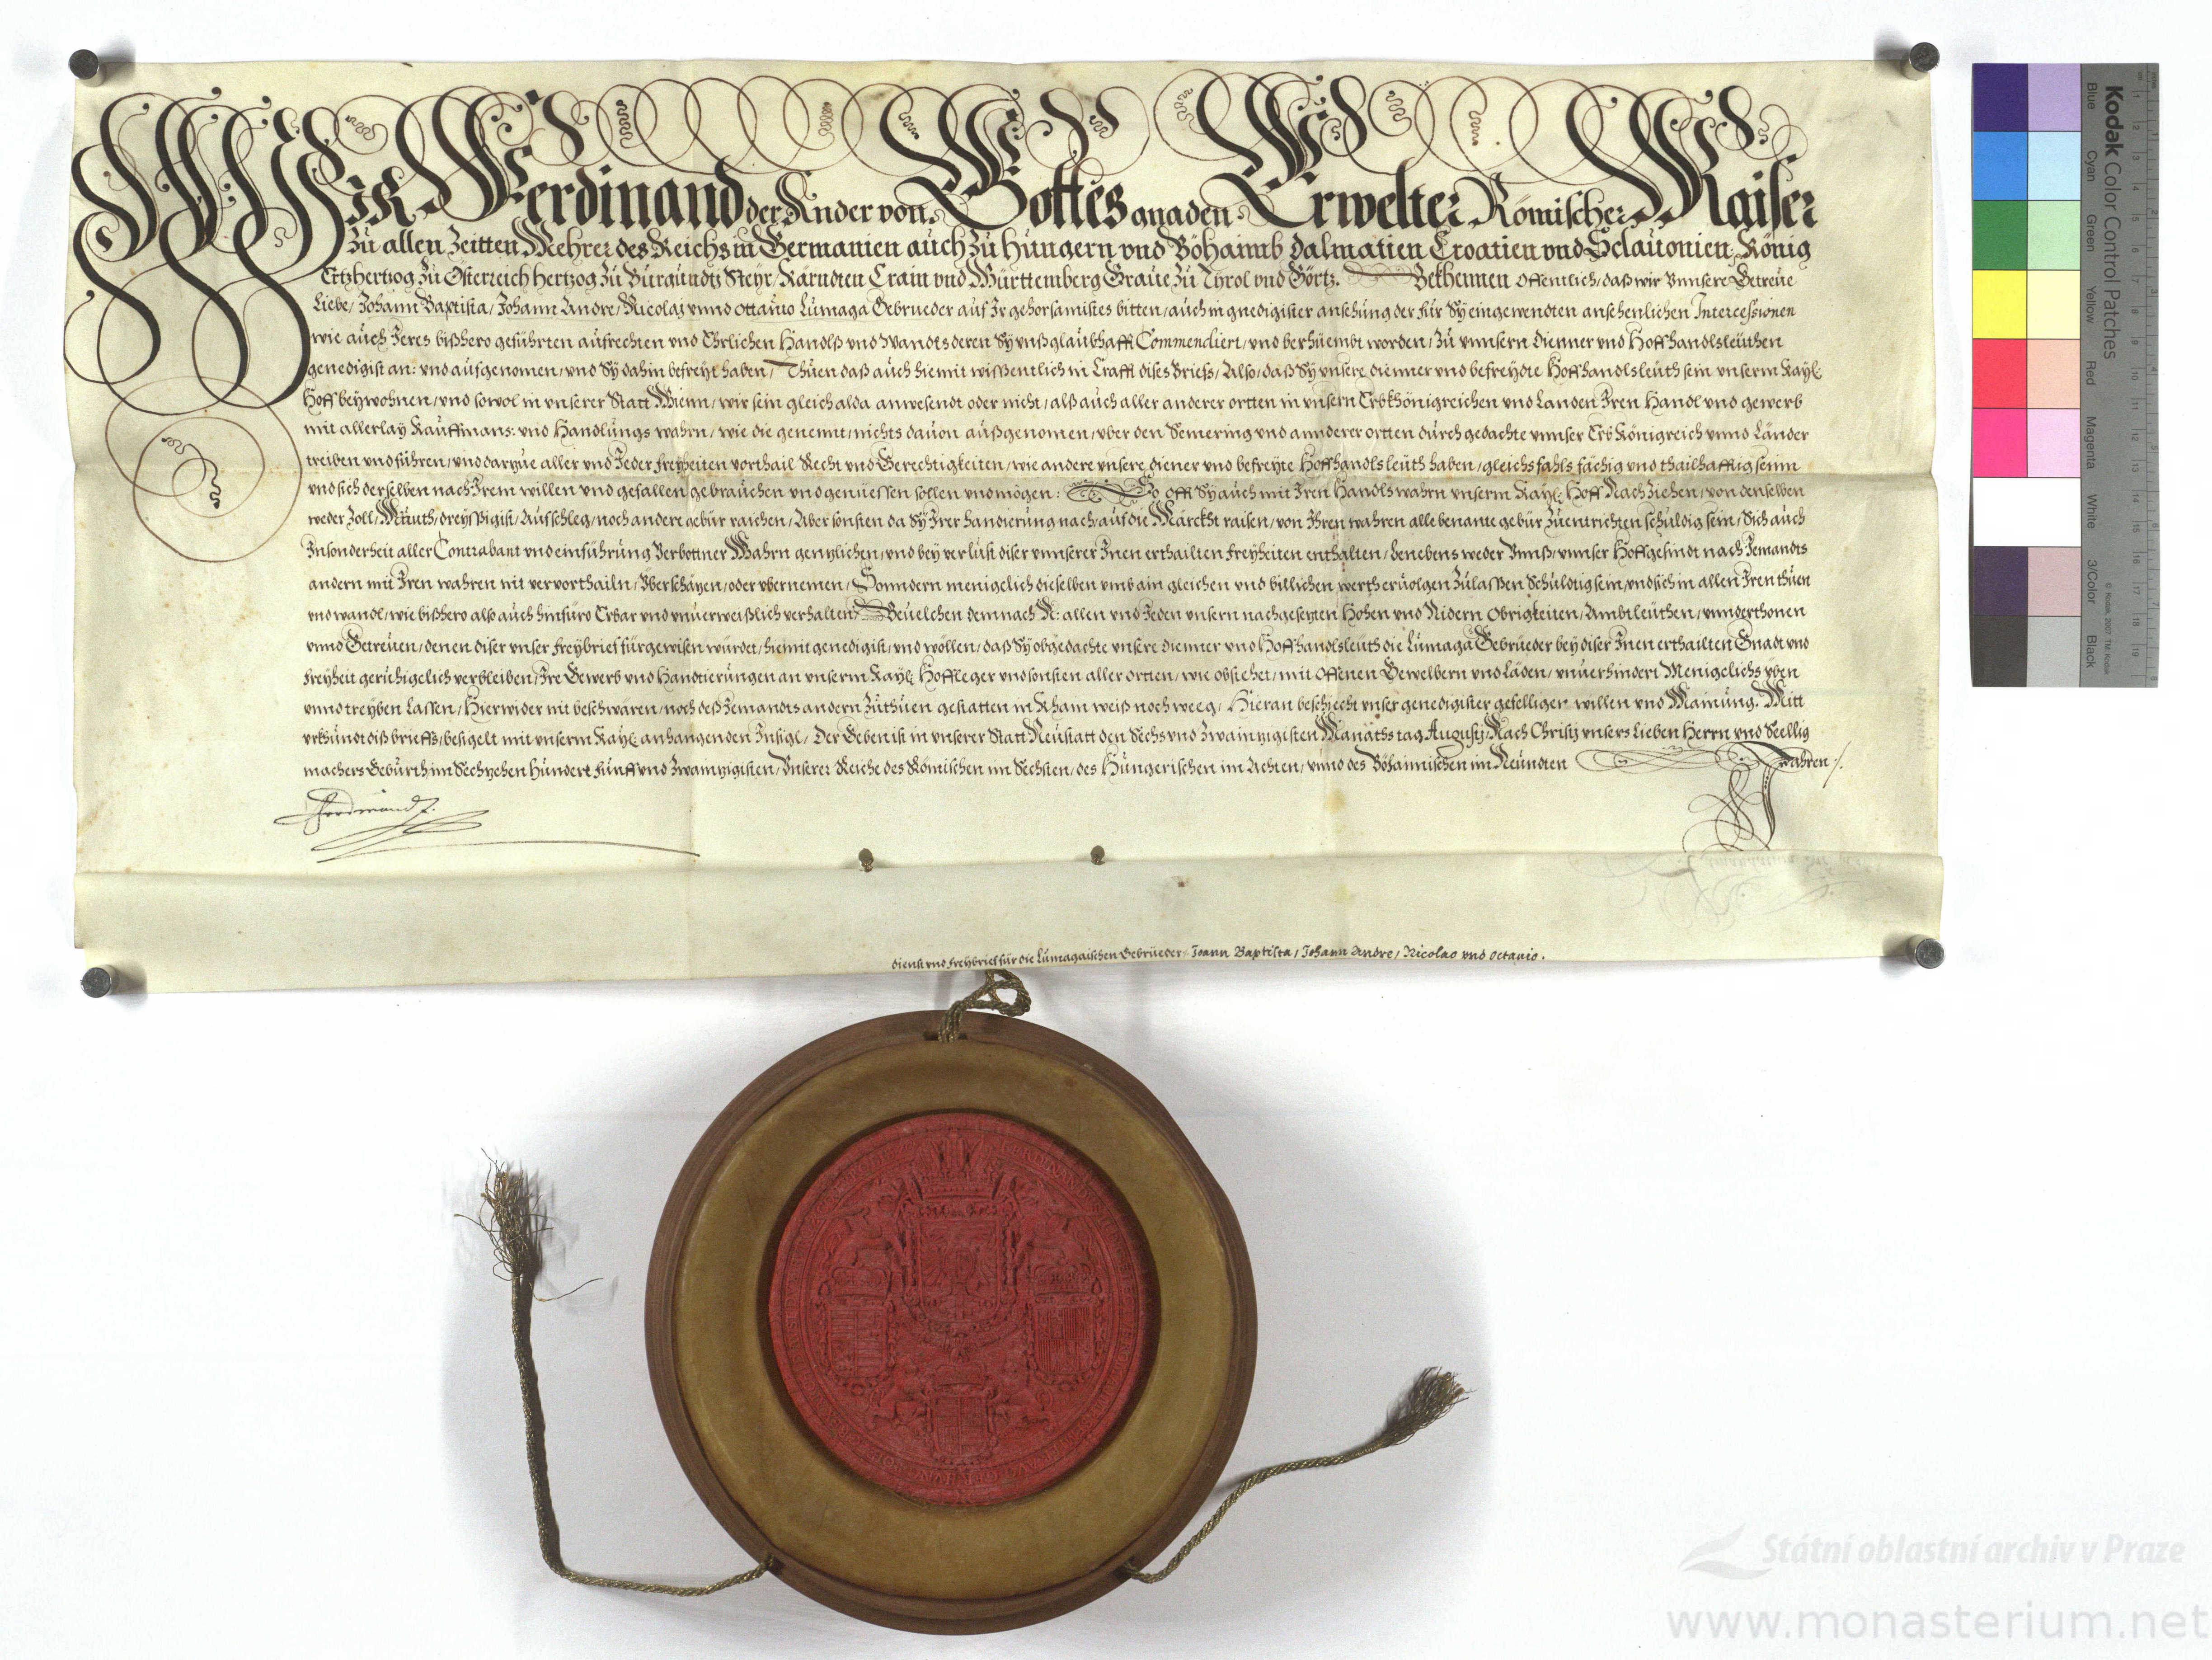 Wir Ferdinand der Ander von Gottes gnaden Erwelter Römischer Kaiser
Zu allen Zeitten Mehrer des Reichs in Germanien auch zu Hungern vnd Böhaimb Dalmatien Croatien vnd Sclauonien, König
Ertzhertzog zu Österreich Hertzog zu Burgundt, Steyr, Kärndten Crain vnd Württemberg Graue zu Tyrol vnd Görtz. Bekhennen offentlich, daß wir Vnnsere Getreüe
Liebe, Johann Baptista, Johann Andre, Nicolaj vnnd Ottauio Lumaga Gebrueder auf Ir gehorsamistes bitten, auch in gnedigister ansehung der für Sy eingewendten ansehenlichen Intercessionen
wie auch Ieres bißhero geführten aufrechten vnd Ehrlichen Handlß vnd Wandls deren Sy vnß glaubhafft Commendiert, vnd berhüembt worden, Zu vnnsern Dienner vnd Hoffhandlsleüthen
genedigist an: vnd aufgenomen, vnd Sy dahin befreyt haben, Thuen daß auch hiemit wissentlich in Crafft dises Briefs, Also, daß Sy vnsere dienner vnd befreydte Hoffhandlsleüth sein vnserm Kayl:
Hoff beywohnen, vnd sowol in vnserer Statt Wienn, wir sein gleich alda anwesendt oder nicht, alß auch aller anderer ortten in vnsern Erbkhönigreichen vnd Landen Iren Handl vnd gewerb
mit allerlay Kauffmans: vnd Handlungs wahrn, wie die genennt, nichts dauon außgenomen, vber den Semering vnd annderer ortten durch gedachte vnnser Erb Königreich vnnd Länder
treiben vnd führen, vnd dargue aller vnd Ieder freyheiten vorthail Recht vnd Gerechtigkeiten, wie andere vnsere diener vnd befreyte Hoffhandlsleüth haben, gleichsfahls fächig vnd thailhafftig seinn
vnd sich derselben nach Irem willen vnd gefallen gebrauchen vnd genüessen sollen vnd mögen: So offt Sy auch mit Iren Handls wahrn vnserm Kayl: Hoff Nachziehen, von denselben
weder Zoll, Mauth, dreyssigist, Aufschleg, noch andere gebür raichen, Aber sonsten da Sy Irer handierung nach, auf die Märckht raisen, von Ihren wahren alle benante gebür Zuentrichten schuldig sein, Sich auch
Insonderheit aller Contrabant vnd einführung Verbottner Wahrn genzlichen, vnd bey verlust diser vnnserer Inen erthailten freyheiten enthalten, benebens weder Vnnß, vnnser Hoffgesindt nach Iemandts
andern mit Iren wahren nit vervorthailn, Vberschäzen, oder vbernemen, Sonndern menigelich dieselben vmb ain gleichen vnd billichen werth eruolgen Zulassen Schuldtig sein, vnd sich in allen Iren thuen
vnd wandl, wie bißhero also auch hinfüro Erbar vnd vnuerweißlich verhalten. Beuelchen demnach N: allen vnd Ieden vnsern nachgesetzten Hohen vnd Nidern Obrigkeiten, Ambtleüthen, vnnderthonen
vnnd Getreuen, denen diser vnser freybrief fürgewisen würdet, hiemit genedigist, vnd wöllen, daß Sy obgedachte vnsere dienner vnd Hoffhandlsleüth die Lumaga Gebrüeder bey diser Inen erthailten Gnadt vnd
freyheit geruhigelich verbleiben, Ire Gewerb vnd Handtierungen an vnserm Kayl: Hoffleger vnd sonsten aller ortten, wie obstehet, mit offenen Gewelbern vnd Läden, vnuerhindert Menigelichs yben
vnnd treyben Lassen, Hierwider nit beschwären, noch deß Iemandts andern Zuthuen gestatten in Kham weiß noch weeg, Hieran beschiecht vnser genedigister gefelliger willen vnd Mainung. Mitt
vrkhundt diß brieffs, besigelt mit vnserm Kayl: anhangenden Insigl, Der Geben ist in vnserer Statt Neustatt den Sechs vnd Zwainzigisten Manaths tag Augustj, Nach Christj vnsers Lieben Herrn vnd Seellig
machers Gebürth, im Sechzehen Hundert fünff vnd Zwainzigisten, Vnserer Reiche des Römischen im Sechsten, des Hungerischen im Achten, vnnd des Böhaimischen im Neundten Jahren ./.
Ferdinand
dienst vnd freybrief für die Lumagaischen Gebrüeder Joann Baptista, Johann Andre, Nicolao vnd Octauio.
Kodak Color Control Patches
Blue Cyan Green Yellow Red Magenta White 3/Color Black
© Kodak, 2007 TM: Kodak
Státní oblastní archiv v Praze
www.monasterium.net